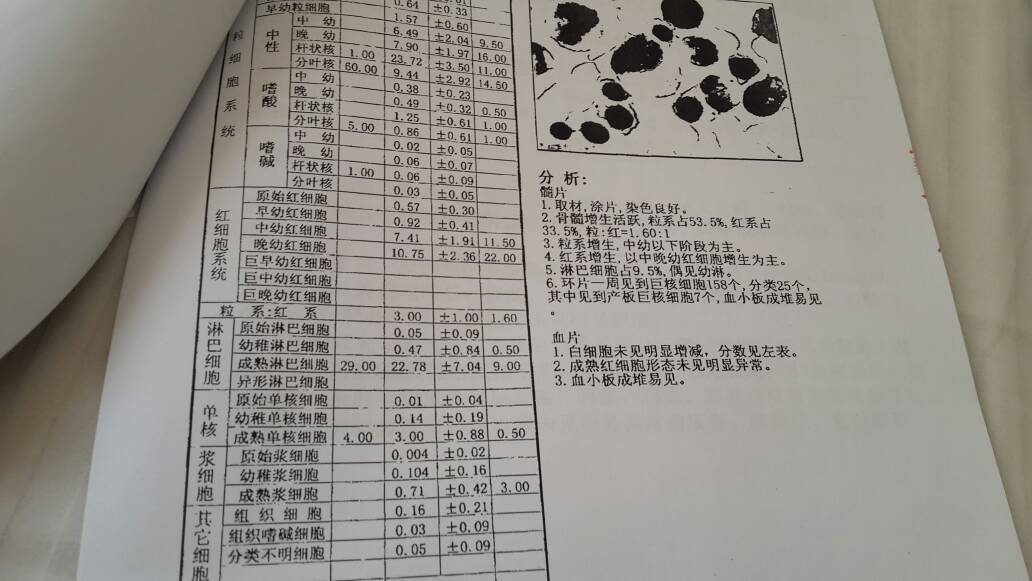 0.64 ±0.33
早幼粒细胞 1.57 ±0.60
粒细胞系统
中性
中幼 6.49 ±2.04 9.50
晚幼 7.90 ±1.97 16.00
杆状核 1.00 23.72 ±3.50 11.00
分叶核 60.00 9.44 ±2.92 14.50
嗜酸
中幼 0.38 ±0.23
晚幼 0.49 ±0.32 0.50
杆状核 1.25 ±0.61 1.00
分叶核 5.00 0.86 ±0.61 1.00
嗜碱
中幼 0.02 ±0.05
晚幼 0.06 ±0.07
杆状核 1.00 0.06 ±0.09
分叶核 0.03 ±0.05
红细胞系统
原始红细胞 0.57 ±0.30
早幼红细胞 0.92 ±0.41
中幼红细胞 7.41 ±1.91 11.50
晚幼红细胞 10.75 ±2.36 22.00
巨早幼红细胞
巨中幼红细胞
巨晚幼红细胞
粒系:红系 3.00 ±1.00 1.60
淋巴细胞
原始淋巴细胞 0.05 ±0.09
幼稚淋巴细胞 0.47 ±0.84 0.50
成熟淋巴细胞 29.00 22.78 ±7.04 9.00
异形淋巴细胞
单核
原始单核细胞 0.01 ±0.04
幼稚单核细胞 0.14 ±0.19
成熟单核细胞 4.00 3.00 ±0.88 0.50
浆细胞
原始浆细胞 0.004 ±0.02
幼稚浆细胞 0.104 ±0.16
成熟浆细胞 0.71 ±0.42 3.00
其它细胞
组织细胞 0.16 ±0.21
组织嗜碱细胞 0.03 ±0.09
分类不明细胞 0.05 ±0.09
分析:
髓片
1.取材,涂片,染色良好。
2.骨髓增生活跃,粒系占53.5%,红系占
33.5%,粒:红=1.60:1
3.粒系增生,中幼以下阶段为主。
4.红系增生,以中晚幼红细胞增生为主。
5.淋巴细胞占9.5%,偶见幼淋。
6.环片一周见到巨核细胞158个,分类25个,
其中见到产板巨核细胞7个,血小板成堆易见
。
血片
1.白细胞未见明显增减,分数见左表。
2.成熟红细胞形态未见明显异常。
3.血小板成堆易见。